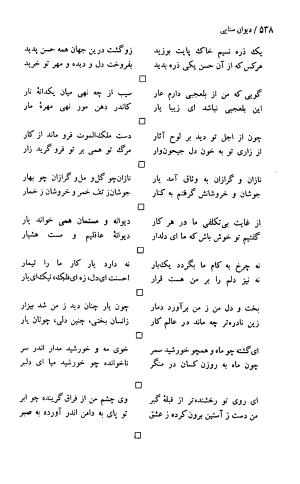 ۵۳۸ / دیوان سنایی
یک ذره نسیم خاک پایت بوزید زو گشت در ین جهان همه حسن پدید
هر کس که از آن حسن یکی ذره بدید بفروخت دل و دیده و مهر تو خرید
گویی که من از بلعجبی دارم عار سیب از چه نهی میان یکدانه نار
این بلعجبی نباشد ای زیبا یار کاندر دهن مور نهی مهرۀ مار
چون از اجل تو دید بر لوح آثار دست ملک‌الموت فرو ماند از کار
از زاری تو به خون دل جیحون‌وار مرگ تو همی بر تو فرو گرید زار
نازان و گرازان به وثاق آمد یار نازان‌چو گل‌ومل‌و گرازان چو بهار
جوشان و خروشانش گرفتم به کنار جوشان‌ز تف خمر و خروشان ز خمار
از غایت بی‌تکلفی ما در هر کار دیوانه و مستمان همی خواند یار
گفتیم تو خوش باش‌که ما ای دلدار دیوانۀ عاقلیم و مست هشیار
نه چرخ به کام ما بگردد یک‌بار نه دارد یار کار ما را تیمار
نه نیز دلم را بر من هست قرار احسنت ای‌دل، زه ای‌فلک، نیک‌ای‌یار
بخت و دل من ز من برآورد دمار چون یار چنان دید ز من شد بیزار
زین نادره‌تر چه ماند در عالم کار زانسان بختی، چنین دلی، چونان یار
ای‌گشته چو ماه و همچو خورشید سمر خوی مه و خورشید مدار اندر سر
چون ماه به روزن کسان در منگر ناخوانده چو خورشید میا ای دلبر
ای روی تو رخشنده‌تر از قبلۀ گبر وی چشم من از فراق گرینده چو ابر
من دست ز آستین برون کرده ز عشق تو پای به دامن اندر آورده به صبر